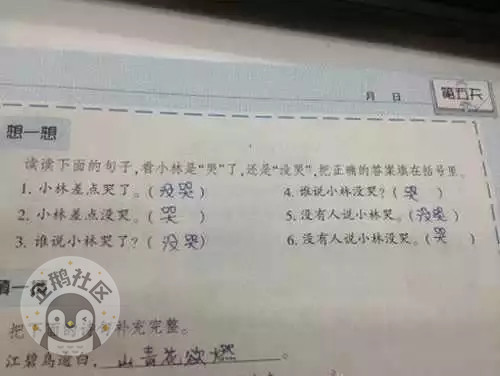 月 日 第五天
想一想
读读下面的句子,看小林是“哭”了,还是“没哭”,把正确的答案填在括号里。
1. 小林差点哭了。(没哭) 4. 谁说小林没哭?(哭)
2. 小林差点没哭。(哭) 5. 没有人说小林哭。(没哭)
3. 谁说小林哭了?(没哭) 6. 没有人说小林没哭。(哭)
填一
企鹅社区
把下面的诗句补充完整。
江碧鸟逾白, 山青花欲燃。